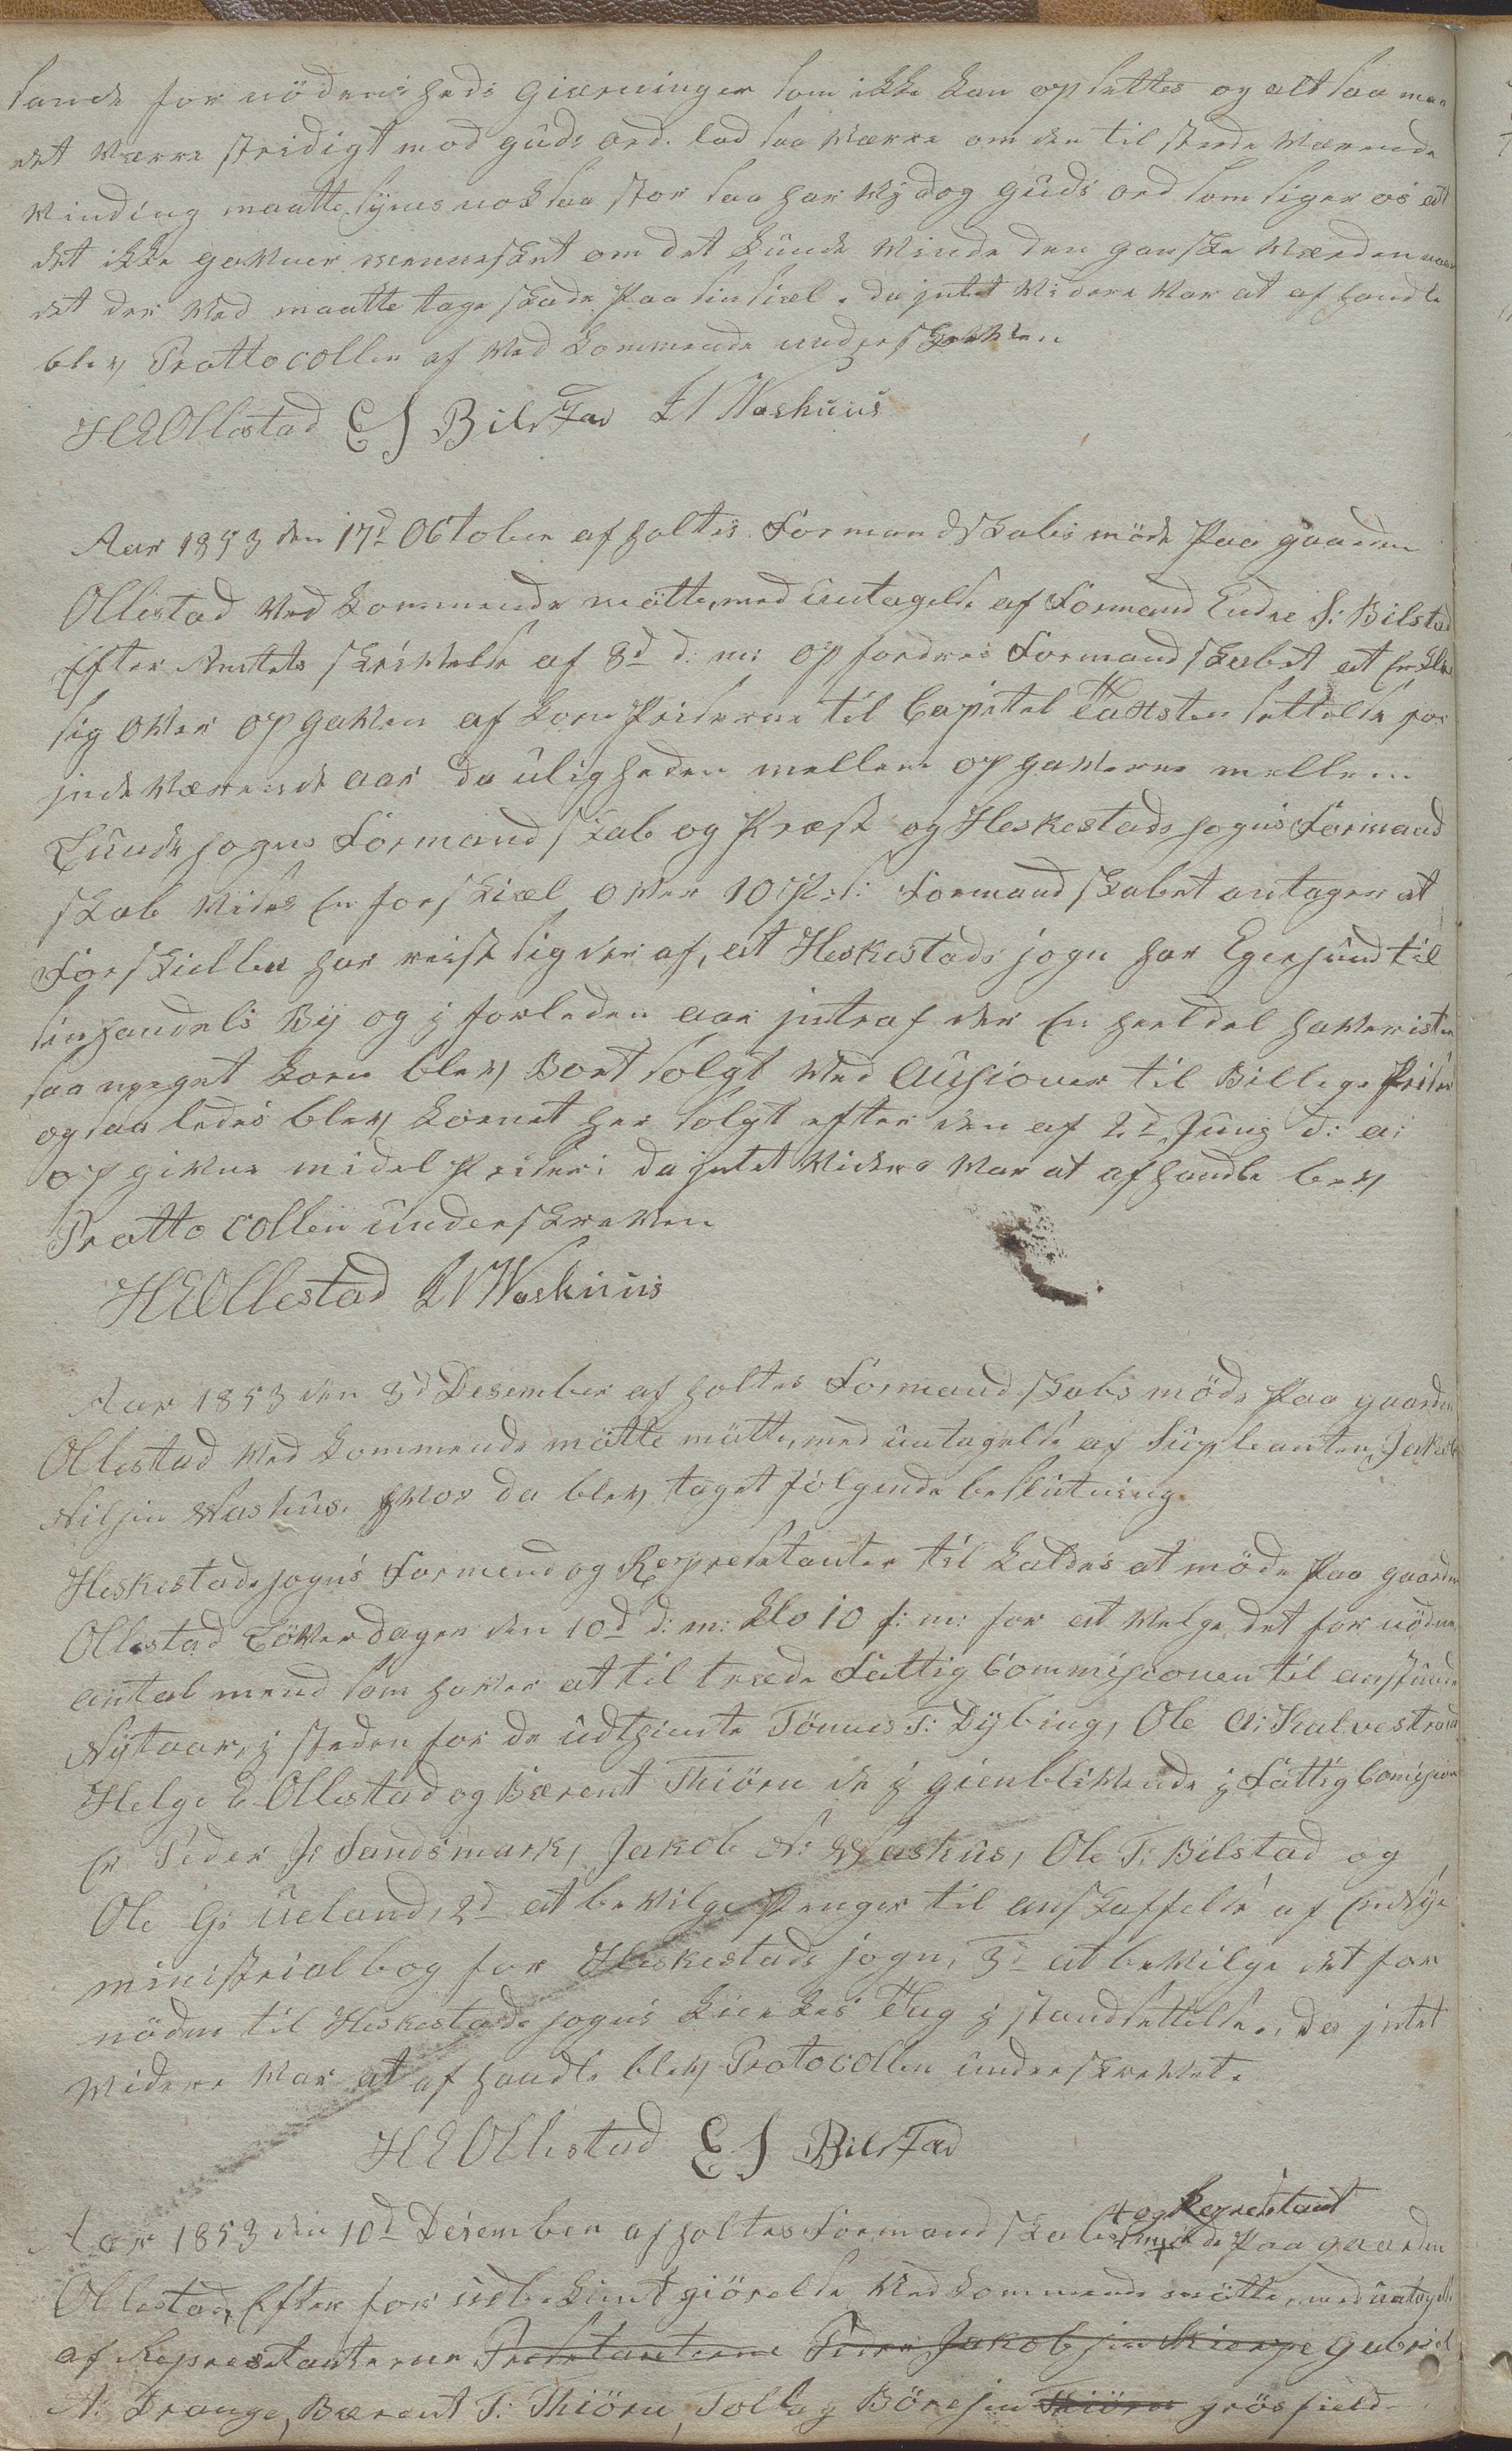 lande for nödenheds gierninger som ikke kan opsettes og alt saa maa
det Værre stridigt mod guds ord. lad saa Værre om den til stede Værende
Vinding maatte synes nok saa stor saa har Vÿ dog guds ord som siger os at
det ikke gavner mennesket om det kunde Vinde den ganske Værden naar
det der Ved maatte tage skade paa sin siæl. da intet Videre Var at af handle
blev Prottocollen af Ved kommende underskreven
H E Ollestad E S Bilstad J N Washuus
Aar 1853 den 17d October af holtes Formandskabs möde Paa gaarden
Ollestad Ved kommende mötte, med undtagelse af Formand Endre S: Bilstad
Efter Amtets skrivelse af 8d d: m: op fordres Formandskabet at Erklære
sig over opgaven af korn Priserne til Capitel Taksten settelse for
inde Værende aar da uligheden mellem opgaverne mellem
Lunde sogns Formandskab og Præst og Heskestads sogns Formand
skab Vides En forskiæl over 10 p:s: Formandskabet antager at
Forskiellen har reist sig der af, at Heskestads sogn har Egersund til
sin handels By og i forleden aar intraf der En heel del haverister
saa meget korn blev Bort solgt Ved Ausioner til Billige Priser
og saa ledes blev kornet her solgt efter den af 2d Juny d: a:
op givne midel Priser: da intet Videre Var at afhandle blev
Protto collen underskreven
H E Ollestad J N Waskuus
Aar 1853 den 3d Desember af holtes Formandskabs möde Paa gaarden
Ollestad Ved kommende mötte mötte, med undtagelse af Supleanten, Jakob
Nilsen Washus. hvor da blev taget følgende beslutning.
Heskestads sogns Formend og Represetanter til kaldes at möde Paa gaarden
Ollestad Löverdagen den 10d d: m: Klo 10 f: m: for at Velge det for nödne
antal mend som haver at til træde Fattig Commisionen til anstunde
Nÿtaar, i steden for de udtiente Tönnes T: Dÿbing, Ole A: Kalvestrand
Helge E Ollestad og Bærent Thiörn de i gienblivende i Fattig Comision
Er Peder J: Sandsmark, Jakob N: Washus, Ole T: Bilstad og
Ole G: Ueland, 2d at bevilge Penger til anskaffelse af En Nÿe
ministrialbog for Heskestads sogn, 3d at bevilge det for
nöden til Heskestads sogns kierkes Tag i standsettelse. da intet
Videre Var at af handle blev Protocollen underskrevet.
H E Ollestad E S Bilstad
+ og Represetant
Aar 1853 den 10d Desember af holtes Formandskabs + möde Paa gaarden
Ollestad, Efter for udbekiimt giörelse Ved kommende mötte, med untagelse
af Represetanterne Presetanterne Peder Jakobsen Skierpe Gabriel
A: Drange, Bærent T: Thiörn, Tollag Böresen Thiörn grösfield